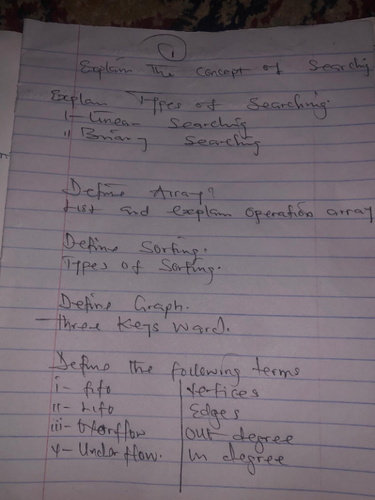 1
Explain The concept of Searchig
Explain Types of Searching.
i- Linear Searching
ii Brinary Searching
Define Array?
List and explain operation array
Define Sorting.
Types of Sorting.
Define Graph.
- three Keys Ward.
Define the following terms
i- fifo | vertices
ii- Lifo | Edges
iii- Overflow | out degree
v- Underflow. | in degree